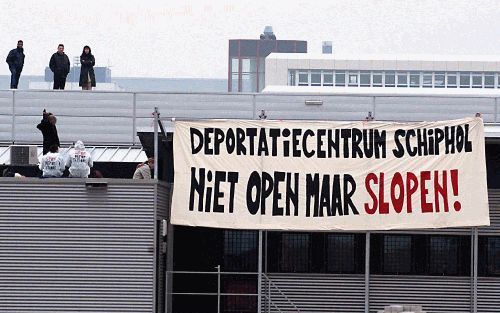 DEPORTATIECENTRUM SCHIPHOL
NIET OPEN MAAR SLOPEN!